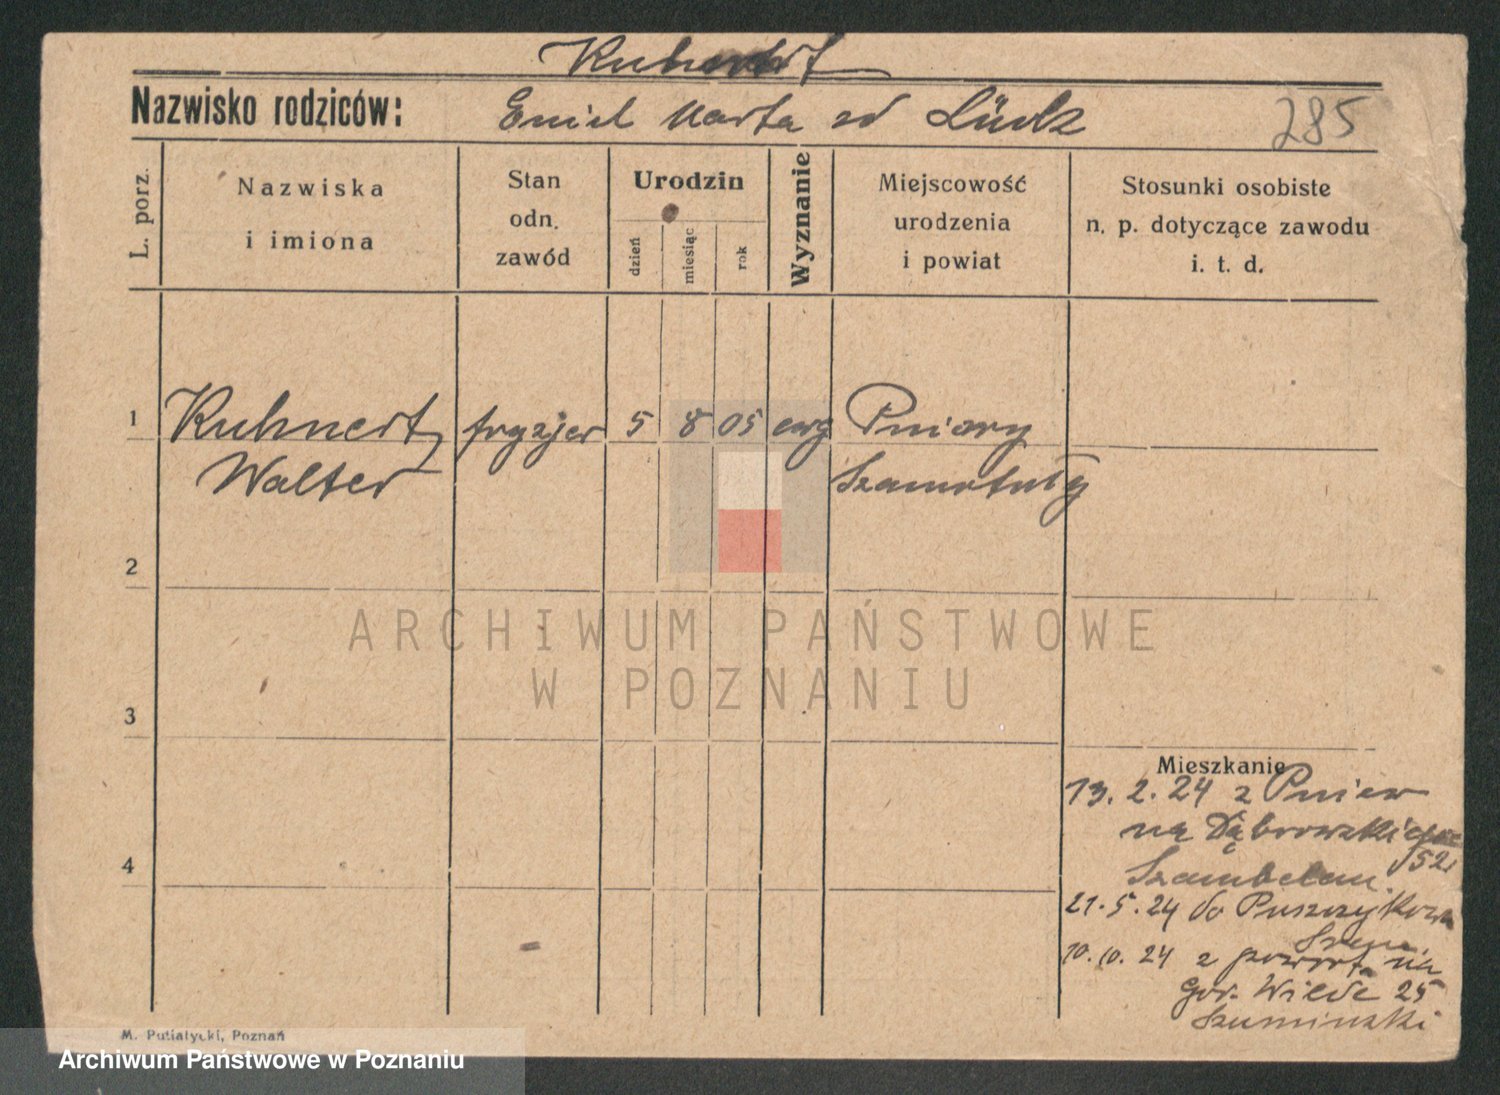 Kuhnert
Nazwisko rodziców:
Emil Marta zd Lück
285
L. porz.
Nazwiska
i imiona
Stan
odn.
zawód
Urodzin
dzień
miesiąc
rok
Wyznanie
Miejscowość
urodzenia
i powiat
Stosunki osobiste
n. p. dotyczące zawodu
i. t. d.
1
Kuhnert
Walter
fryzjer
5
8
05
ewg
Pniewy
Szamotuły
2
3
4
Mieszkanie
13. 2. 24 z Pniew
na Dąbrowskiego
52
Szambelan.
21. 5. 24 do Puszczykowa
10. 10. 24 z powrotu na
Gór. Wilda 25
Szuminski
M. Putiatycki, Poznań
ARCHIWUM PAŃSTWOWE
W POZNANIU
Archiwum Państwowe w Poznaniu